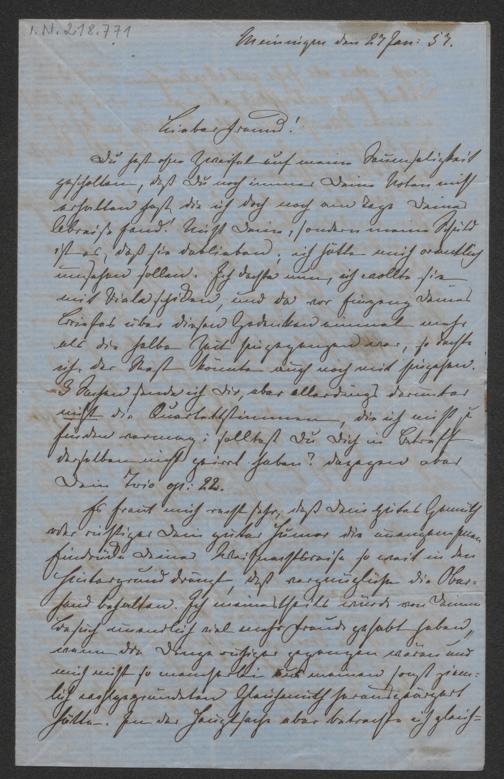 I.N. 218.771
Meiningen den 27 Jan: 57.
Lieber Freund!
Du hast ohne Zweifel auf meine Saumseligkeit
gescholten, daß Du noch immer Deine Noten nicht
erhalten hast, die ich doch noch am Tage Deiner
Abreise fand! Nicht Deine, sondern meine Schuld
ist es, daß sie dablieben; ich hätte mich ordentlich
umsehen sollen. Ich dachte nun, ich wollte sie
mit Viola schicken, und da vor Eingang Deines
Briefes über diesen Gedanken einmal mehr
als die halbe Zeit hingegangen war, so dachte
ich der Rest könnte auch noch mit hingehen.
3 Sachen sende ich Dir, aber allerdings darunter
nicht die Quartettstimmen, die ich nicht zu
finden vermag; solltest Du Dich in Betreff
derselben nicht geirrt haben? dagegen aber
Dein Trio op: 22.
Es freut mich recht sehr, daß Dein gutes Gemüth
oder richtiger Dein guter Humor die unangenehmen
Eindrücke Deiner Weihnachtsreise so weit in den
Hintergrund drängt, daß vergnügliche die Ober-
hand behalten. Ich meinestheils würde von Deinem
Besuch unendlich viel mehr Freude gehabt haben,
wenn die Dinge ruhiger gegangen wären und
mich nicht so mancherlei aus meinem sonst ziem-
lich wohlgegründeten Gleichmuth
hätte. In der Hauptsache aber betrachte ich gleich-